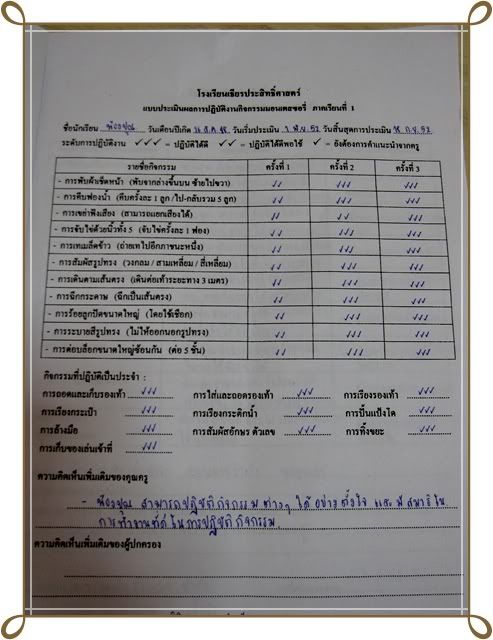 โรงเรียนเธียรประสิทธิ์ศาสตร์
แบบประเมินผลการปฏิบัติงานกิจกรรมมอนเตสซอรี่ ภาคเรียนที่ 1
ชื่อนักเรียน น้องปุณ วันเดือนปีเกิด วันเริ่มประเมิน 1 พ.ย. 52 วันสิ้นสุดการประเมิน 18 ก.ย. 52
ระดับการปฏิบัติงาน ✓✓✓ = ปฏิบัติได้ดี ✓✓ = ปฏิบัติได้ดีพอใช้ ✓ = ยังต้องการคำแนะนำจากครู
รายชื่อกิจกรรม ครั้งที่ 1 ครั้งที่ 2 ครั้งที่ 3
- การพับผ้าเช็ดหน้า (พับจากล่างขึ้นบน ซ้ายไปขวา) ✓✓ ✓✓✓ ✓✓✓
- การคีบฟองน้ำ (คีบครั้งละ 1 ลูก / ไป-กลับรวม 5 ลูก) ✓✓ ✓✓✓ ✓✓✓
- การเขย่าฟังเสียง (สามารถแยกเสียงได้) ✓✓ ✓✓ ✓✓✓
- การจับไข่ด้วยนิ้วทั้ง 5 (จับไข่ครั้งละ 1 ฟอง) ✓✓ ✓✓✓ ✓✓✓
- การเทเมล็ดข้าว (ถ่ายเทไปอีกภาชนะหนึ่ง) ✓✓ ✓✓✓ ✓✓✓
- การสัมผัสรูปทรง (วงกลม / สามเหลี่ยม / สี่เหลี่ยม) ✓✓ ✓✓✓ ✓✓✓
- การเดินตามเส้นตรง (เดินต่อเท้าระยะทาง 3 เมตร) ✓✓ ✓✓✓ ✓✓✓
- การฉีกกระดาษ (ฉีกเป็นเส้นตรง) ✓✓ ✓✓✓ ✓✓✓
- การร้อยลูกปัดขนาดใหญ่ (โดยใช้เชือก) ✓✓ ✓✓✓ ✓✓✓
- การระบายสีรูปทรง (ไม่ให้ออกนอกรูปทรง) ✓✓ ✓✓✓ ✓✓✓
- การต่อบล็อกขนาดใหญ่ซ้อนกัน (ต่อ 5 ชั้น) ✓✓ ✓✓✓ ✓✓✓
กิจกรรมที่ปฏิบัติเป็นประจำ :
การถอดและเก็บรองเท้า ✓✓✓ การใส่และถอดรองเท้า ✓✓✓ การเรียงรองเท้า ✓✓✓
การเรียงกระเป๋า ✓✓✓ การเรียงกระติกน้ำ ✓✓✓ การปั้นแป้งโด ✓✓✓
การล้างมือ ✓✓✓ การสัมผัสอักษร ตัวเลข ✓✓✓ การทิ้งขยะ ✓✓✓
การเก็บของเล่นเข้าที่ ✓✓✓
ความคิดเห็นเพิ่มเติมของคุณครู
- น้องปุณ สามารถปฏิบัติกิจกรรมต่างๆ ได้อย่างตั้งใจ และมีสมาธิใน
การทำงานที่ดี ในการปฏิบัติกิจกรรม
ความคิดเห็นเพิ่มเติมของผู้ปกครอง